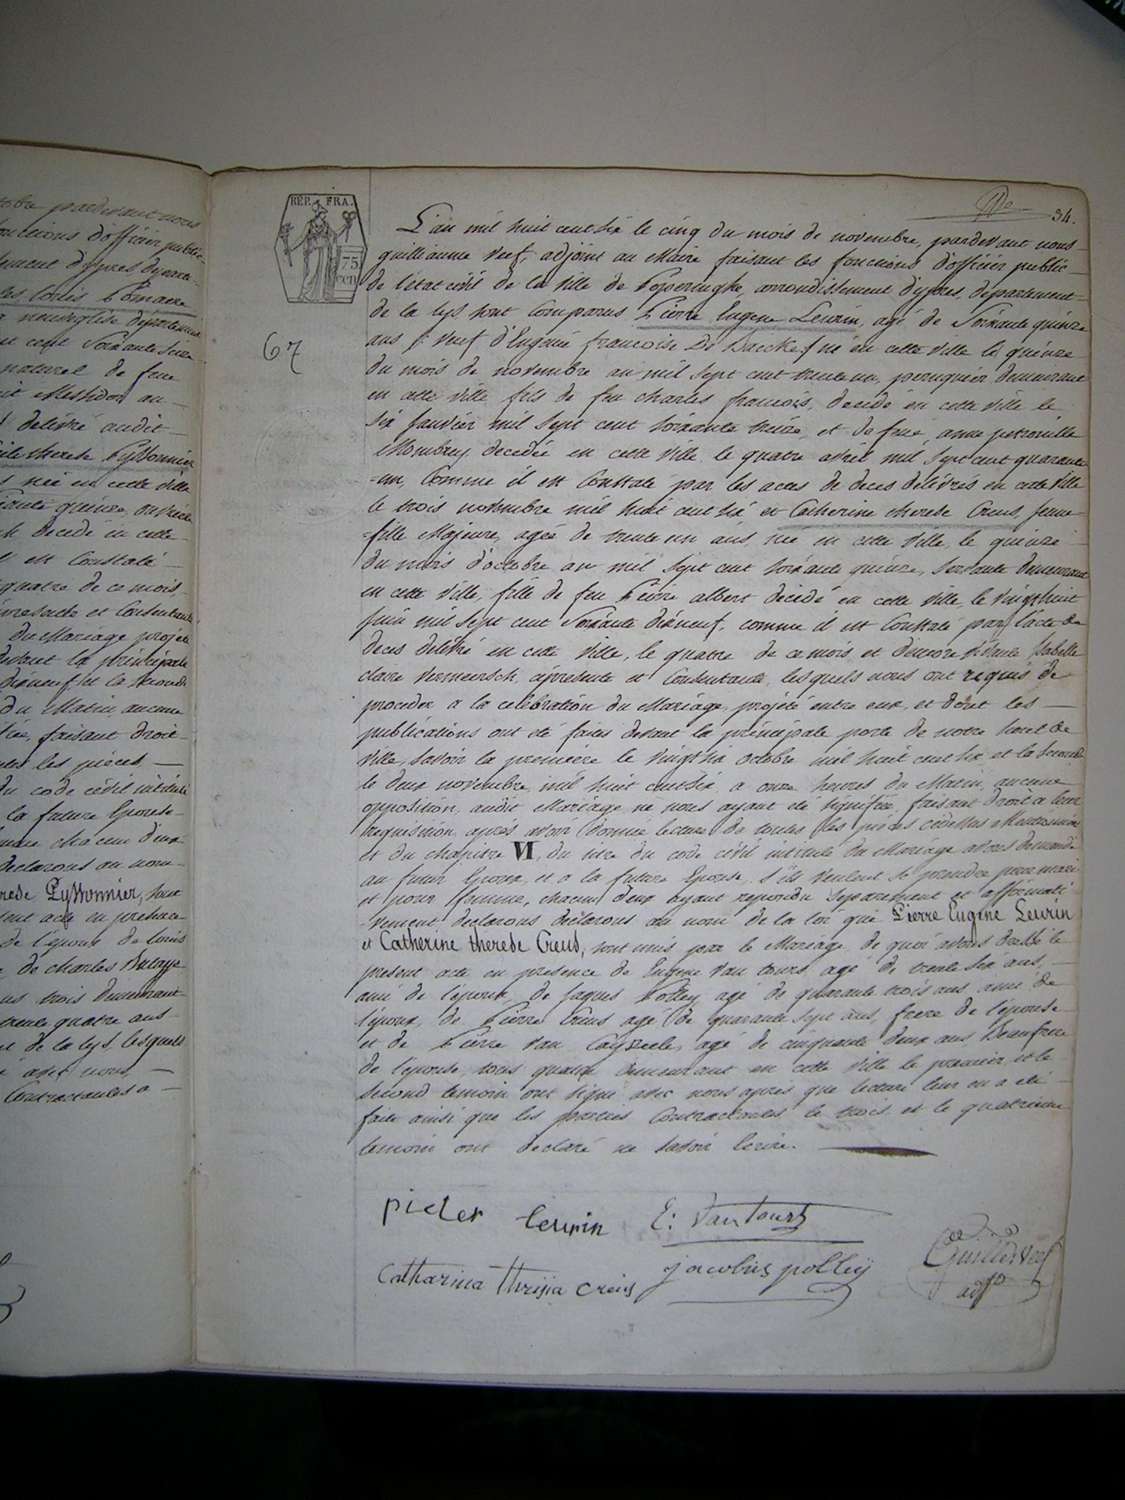 tobre pardevant nous
fonctions d'officier public
les louis
cent soixante seize
naturel de feue
delivré audit
therese Pyssonnier
née en cette ville
decedé en cette
est Constaté
quatre de ce mois
et Consentante
du Mariage projeté
devant la principale
du Matin aucune
faisant droit
les pièces
du code civil intitulé
la future Epouse
chacun d'eux
declarons au nom
Pyssonnier, sont
acte en presence
de l'epoux de louis
de charles
trois demeurant
trente quatre ans
de la lys, lesquels
avec nous
Contractantes
REP. FRA.
75
CEN
34.
67
L'an mil huit cent six le cinq du mois de novembre, pardevant nous
guilliaume Veef, adjoint au Maire faisant les fonctions d'officier public
de l'etat civil de la ville de Poperinghe, arrondissement d'ypres, departement
de la lys sont Comparus Pierre Eugene Leurin, agé de Soixante quinze
ans veuf d'Eugenie francoise De Baecke né en cette ville le quinze
du mois de novembre an mil sept cent trente un, peruquier demeurant
en cette ville fils de feu charles francois, decedé en cette ville le
six Janvier mil sept cent soixante treize, et de feue anne petronille
Mombrey decedée en cette ville le quatre avril mil sept cent quarante
-un, Comme il est Constaté par les actes de deces delivrés en cette ville
le trois novembre mil huit cent six et Catherine therese Creus, jeune
fille Majeure, agée de trente un ans, née en cette ville, le quinze
du mois d'octobre an mil sept cent soixante quinze, servante demeurant
en cette ville, fille de feu Pierre albert decedé en cette ville, le vingt huit
juin mil sept cent Soixante dixneuf, comme il est Constaté par l'acte de
deces delivré en cette ville, le quatre de ce mois et d'encore vivante Isabelle
claire Vermeersch, cipresente et Consentante, lesquels nous ont requis de
proceder a la celebration du Mariage projeté entre eux, et dont les
publications ont été faites devant la principale porte de notre hotel de
ville, savoir la premiere le vingt six octobre mil huit cent six et la seconde
le deux novembre mil huit cent six, a onze heures du Matin, aucune
opposition audit Mariage ne nous ayant été signifiée, faisant droit a leur
requisition, après avoir donnée lecture de toutes les pièces cidessus Mentionnées
et du chapitre VI, du titre du code civil intitulé du Mariage avons demandé
au futur Epoux, et a la future Epouse, s'ils veulent se prendre pour mari
et pour femme, chacun d'eux ayant repondu Separement et affirmati
-vement declarons declarons au nom de la loi que Pierre Eugene Leurin
et Catherine therese Creus, sont unis par le Mariage, de quoi avons dressé le
present acte en presence de Eugene Van tours agé de trente six ans,
ami de l'epoux, de Jaques Polley agé de quarante trois ans ami de
l'epoux, de Pierre Creus agé de quarante sept ans, frere de l'epouse
et de Pierre Van agé de cinquante deux ans Beaufrere
de l'epouse, tous quatre demeurant en cette ville le premier et le
second temoin ont signé avec nous après que lecture leur en a été
faite ainsi que les parties Contractantes le trois et le quatrieme
temoin ont declaré ne savoir écrire.
pieter leurin E: Vantours
Catharina thrisia creus jacobus polleÿ
Guill: Veef
adjt